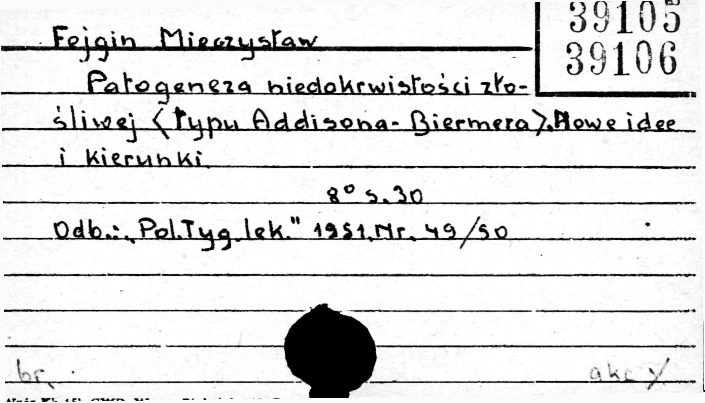 39105
39106
Fejgin Mieczysław
Patogeneza niedokrwistości zło-
śliwej <typu Addisona-Biermera>. Nowe idee
i kierunki.
8° s. 30
Odb.: „Pol.Tyg.lek." 1951.Nr. 49/50
br.
akc